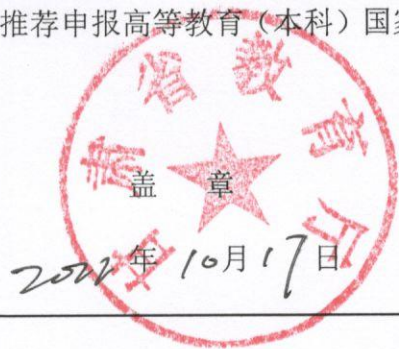 推荐申报高等教育（本科）国家
江苏省教育厅
盖 章
2022 年 10月17日